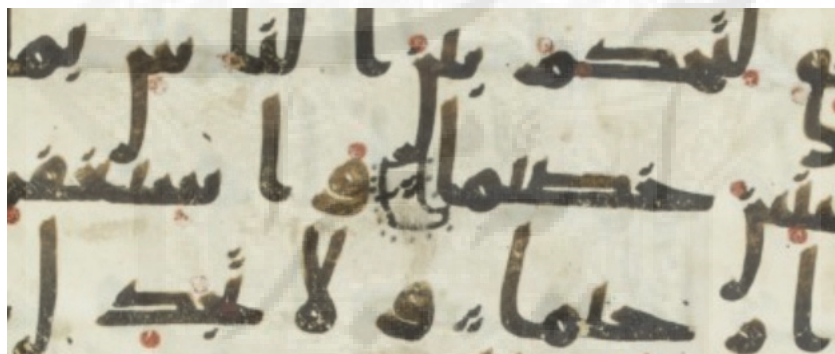 لتحكم بين الناس بما
ـنين خصيما و ا ستغفـ
ا ر حيما و لا تجد ل